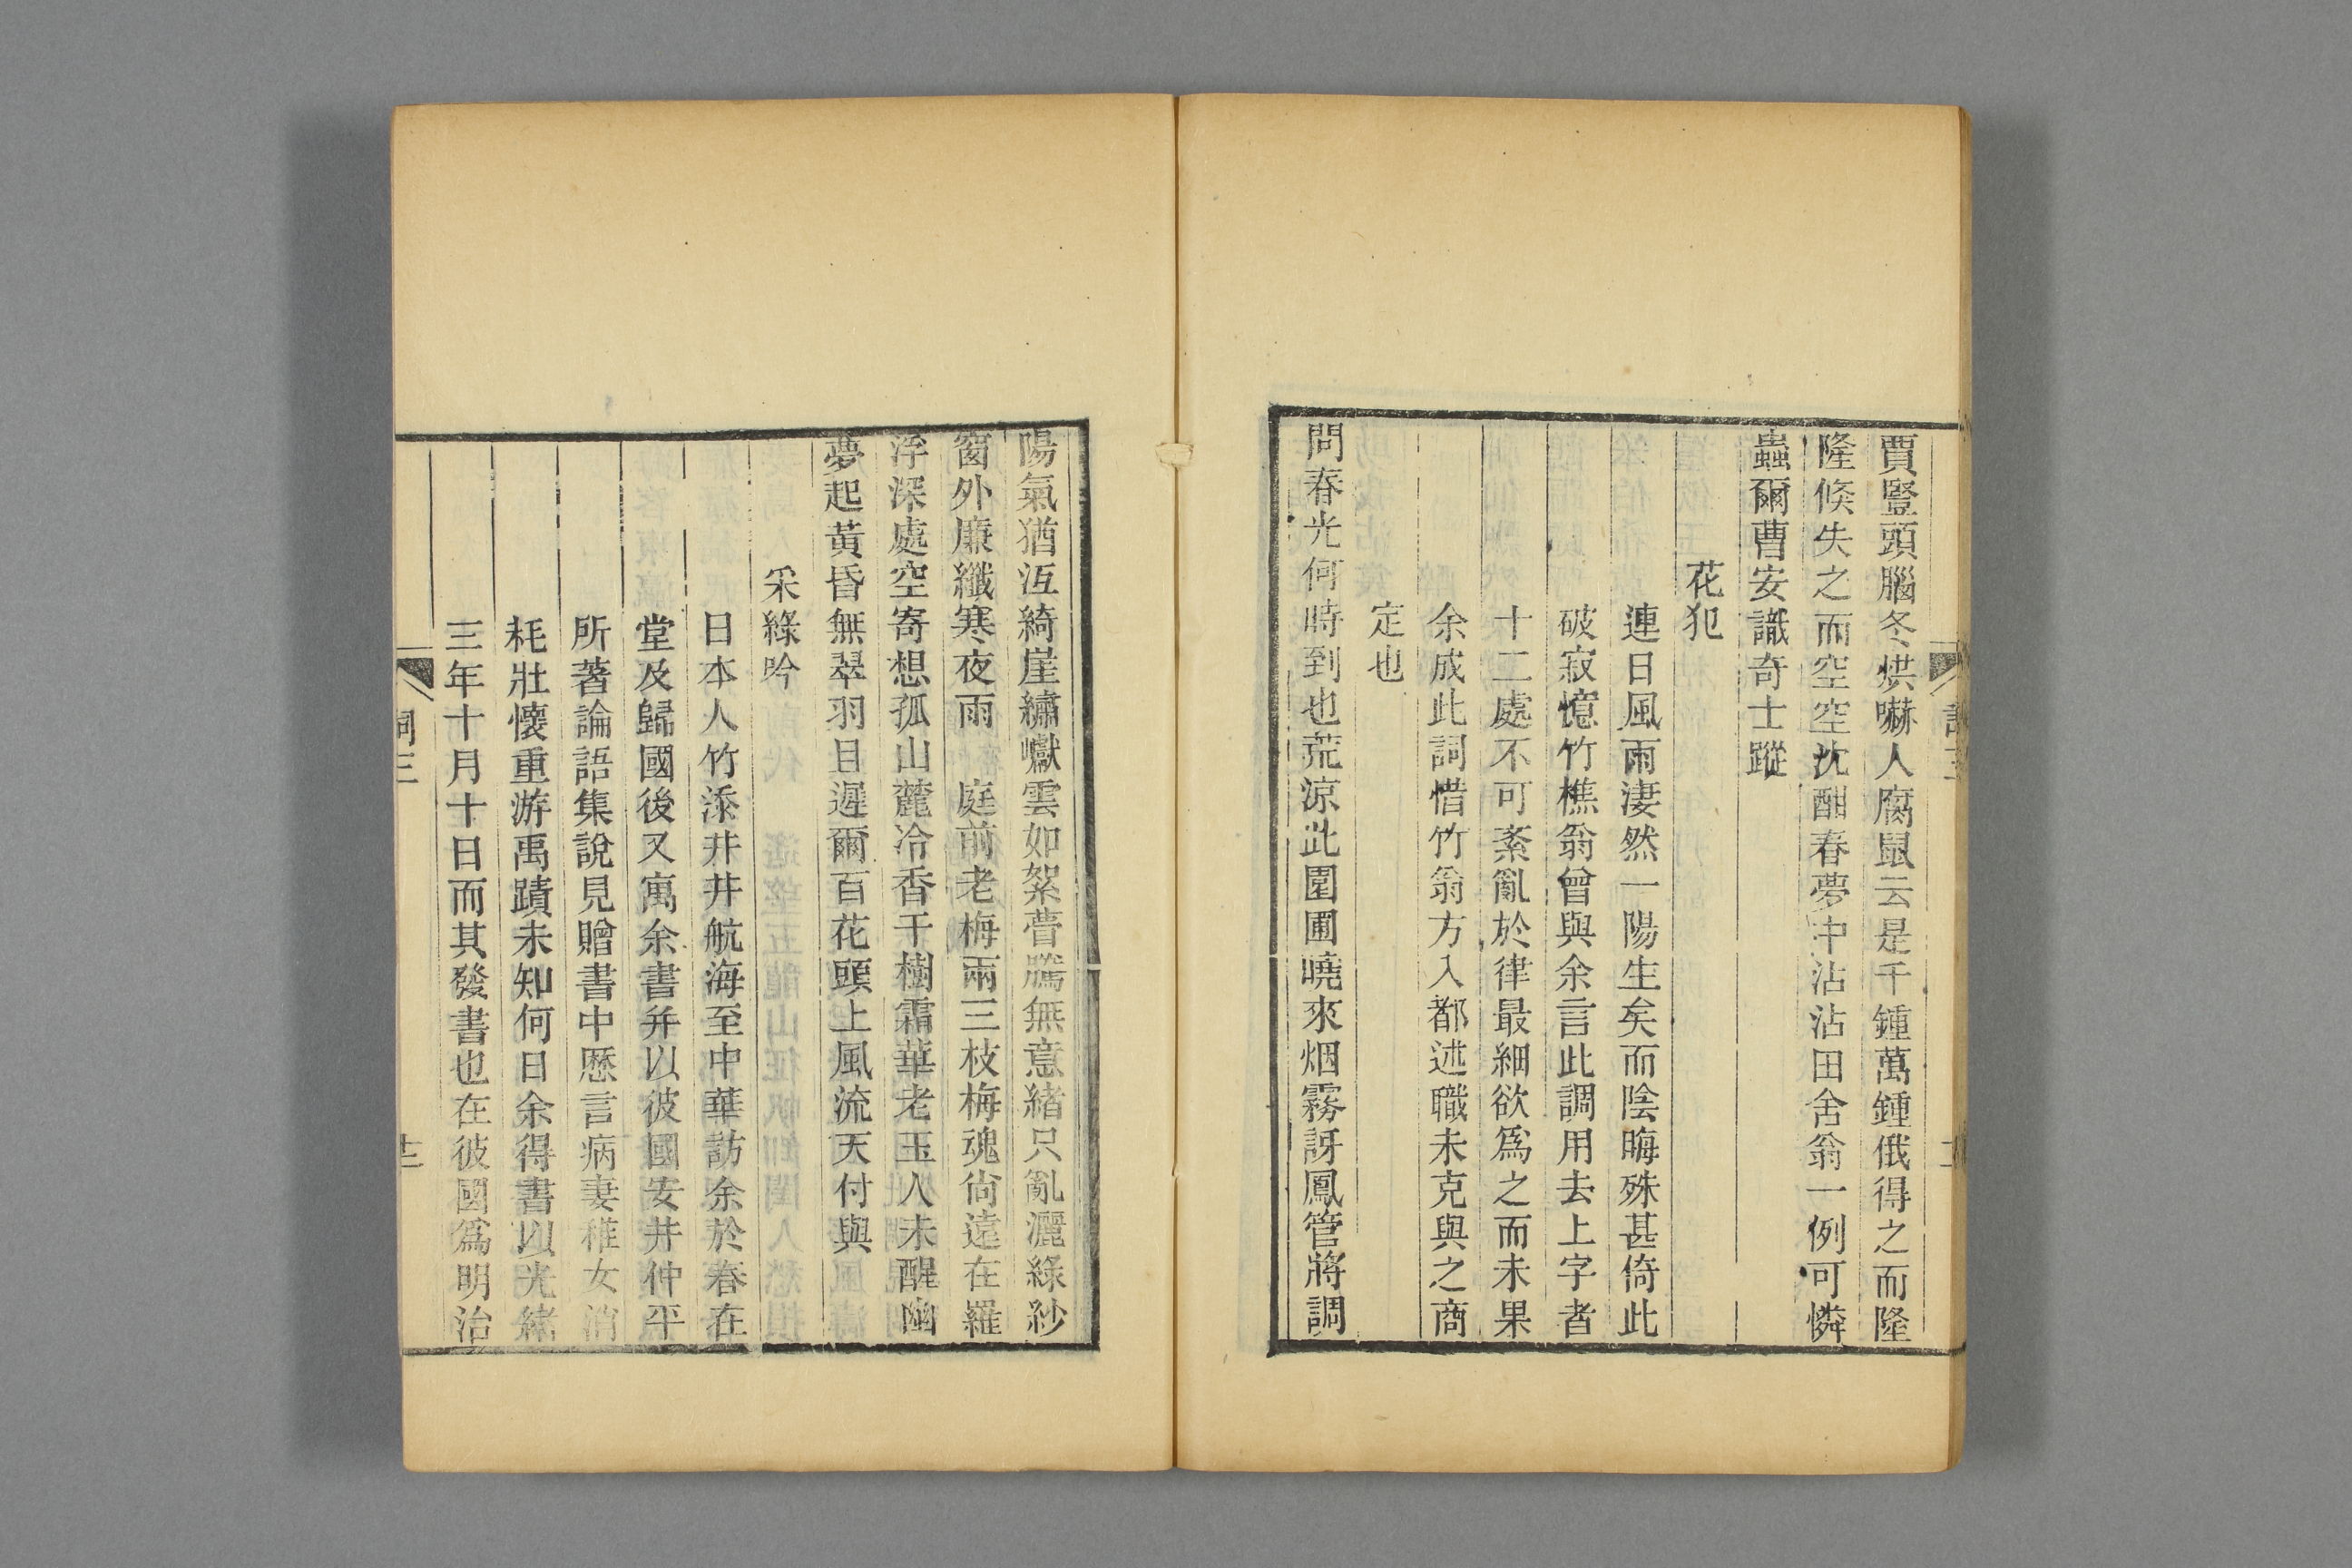 賈豎頭腦冬烘嚇人腐鼠云是千鍾萬鍾俄得之而隆
隆倏失之而空空沈酣春夢中沾沾田舍翁一例可憐
蟲爾曹安識奇士蹤
花犯
連日風雨淒然一陽生矣而陰晦殊甚倚此
破寂憶竹樵翁曾與余言此調用去上字者
十二處不可紊亂於律最細欲爲之而未果
余成此詞惜竹翁方入都述職未克與之商
定也
問春光何時到也荒涼此園圃曉來烟霧訝鳳管將調
陽氣猶冱綺崖繡巘雲如絮瞢騰無意緒只亂灑綠紗
窗外廉纖寒夜雨 庭前老梅兩三枝梅魂尙遠在羅
浮深處空寄想孤山麓冷香千樹霜華老玉人未醒幽
夢起黃昏無翠羽且遲爾百花頭上風流天付與
采綠吟
日本人竹添井井航海至中華訪余於春在
堂及歸國後又寓余書幷以彼國安井仲平
所著論語集說見贈書中歷言病妻稚女消
耗壯懷重游禹蹟未知何日余得書以光緒
三年十月十日而其發書也在彼國爲明治
詞三